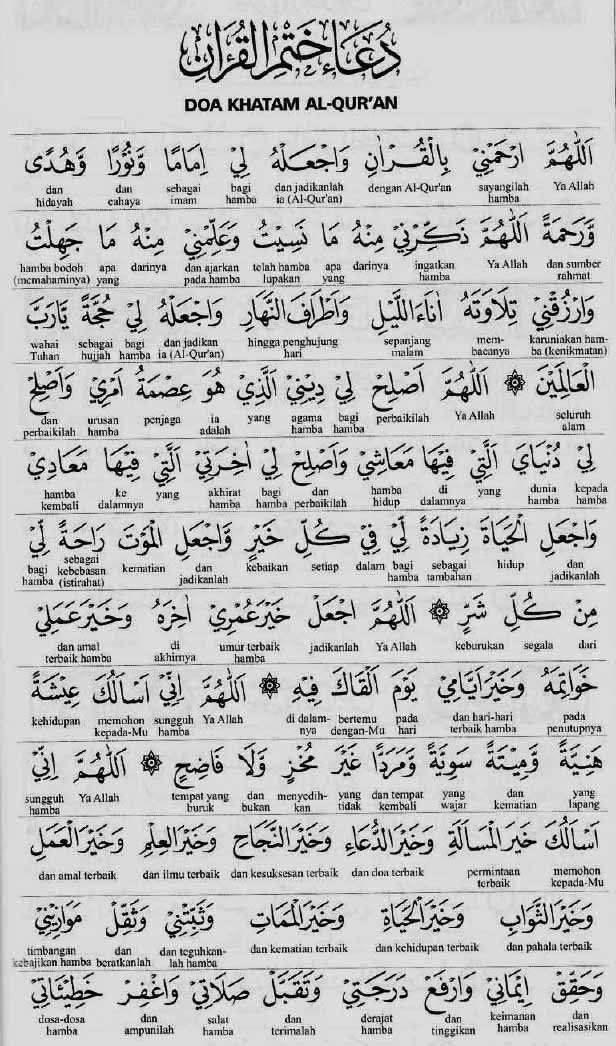 دُعَاءُ خَتْمِ الْقُرْاٰنِ
DOA KHATAM AL-QUR'AN
اَللّٰهُمَّ ارْحَمْنِيْ بِالْقُرْاٰنِ وَاجْعَلْهُ لِيْ اِمَامًا وَّنُوْرًا وَّهُدًى
Ya Allah sayangilah hamba dengan Al-Qur'an dan jadikanlah ia (Al-Qur'an) bagi hamba sebagai imam dan cahaya dan hidayah
وَّرَحْمَةً اَللّٰهُمَّ ذَكِّرْنِيْ مِنْهُ مَا نَسِيْتُ وَعَلِّمْنِيْ مِنْهُ مَا جَهِلْتُ
dan sumber rahmat Ya Allah ingatkan hamba darinya apa yang telah hamba lupakan dan ajarkan pada hamba darinya apa yang hamba bodoh (memahaminya)
وَارْزُقْنِيْ تِلَاوَتَهُ اٰنَاءَ اللَّيْلِ وَاَطْرَافَ النَّهَارِ وَاجْعَلْهُ لِيْ حُجَّةً يَارَبَّ
karuniakan hamba (kenikmatan) membacanya sepanjang malam hingga penghujung hari dan jadikan ia (Al-Qur'an) bagi hamba sebagai hujjah wahai Tuhan
الْعَالَمِيْنَ ۞ اَللّٰهُمَّ اَصْلِحْ لِيْ دِيْنِيْ الَّذِيْ هُوَ عِصْمَةُ اَمْرِيْ وَاَصْلِحْ
seluruh alam Ya Allah perbaikilah bagi hamba agama hamba yang ia adalah penjaga urusan hamba dan perbaikilah
لِيْ دُنْيَايَ الَّتِيْ فِيْهَا مَعَاشِيْ وَاَصْلِحْ لِيْ اٰخِرَتِيْ الَّتِيْ فِيْهَا مَعَادِيْ
kepada hamba dunia hamba yang di dalamnya hamba hidup dan perbaikilah bagi hamba akhirat hamba yang ke dalamnya hamba kembali
وَاجْعَلِ الْحَيَاةَ زِيَادَةً لِيْ فِيْ كُلِّ خَيْرٍ وَّاجْعَلِ الْمَوْتَ رَاحَةً لِيْ
dan jadikanlah hidup sebagai tambahan bagi hamba dalam setiap kebaikan dan jadikanlah kematian sebagai kebebasan (istirahat) bagi hamba
مِنْ كُلِّ شَرٍّ ۞ اَللّٰهُمَّ اجْعَلْ خَيْرَ عُمْرِيْ اٰخِرَهُ وَخَيْرَ عَمَلِيْ
dari segala keburukan Ya Allah jadikanlah umur terbaik hamba di akhirnya dan amal terbaik hamba
خَوَاتِمَهُ وَخَيْرَ اَيَّامِيْ يَوْمَ اَلْقَاكَ فِيْهِ ۞ اَللّٰهُمَّ اِنِّيْ اَسْاَلُكَ عِيْشَةً
pada penutupnya dan hari-hari terbaik hamba pada hari bertemu dengan-Mu di dalamnya Ya Allah sungguh hamba memohon kepada-Mu kehidupan
هَنِيَّةً وَّمِيْتَةً سَوِيَّةً وَّمَرَدًّا غَيْرَ مُخْزٍ وَّلَا فَاضِحٍ ۞ اَللّٰهُمَّ اِنِّيْ
yang lapang dan kematian yang wajar dan tempat kembali yang tidak menyedihkan dan bukan tempat yang buruk Ya Allah sungguh hamba
اَسْاَلُكَ خَيْرَ الْمَسْاَلَةِ وَخَيْرَ الدُّعَاءِ وَخَيْرَ النَّجَاحِ وَخَيْرَ الْعِلْمِ وَخَيْرَ الْعَمَلِ
memohon kepada-Mu permintaan terbaik dan doa terbaik dan kesuksesan terbaik dan ilmu terbaik dan amal terbaik
وَخَيْرَ الثَّوَابِ وَخَيْرَ الْحَيَاةِ وَخَيْرَ الْمَمَاتِ وَثَبِّتْنِيْ وَثَقِّلْ مَوَازِيْنِيْ
dan pahala terbaik dan kehidupan terbaik dan kematian terbaik dan teguhkanlah hamba dan beratkanlah timbangan kebajikan hamba
وَحَقِّقْ اِيْمَانِيْ وَارْفَعْ دَرَجَتِيْ وَتَقَبَّلْ صَلَاتِيْ وَاغْفِرْ خَطِيْئَاتِيْ
dan realisasikan keimanan hamba dan tinggikan derajat hamba dan terimalah salat hamba dan ampunilah dosa-dosa hamba